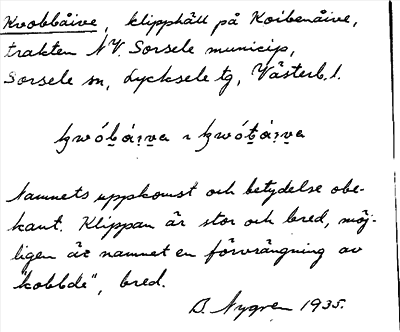 Kvobbåive, klipphäll på Koibenåive,
trakten NV. Sorsele municip,
Sorsele sn, Lycksele tg, Västerb. l.
Namnets uppkomst och betydelse obe-
kant. Klippan är stor och bred, möj-
ligen är namnet en förvrängning av
"kobbde", bred.
D. Nygren 1935.